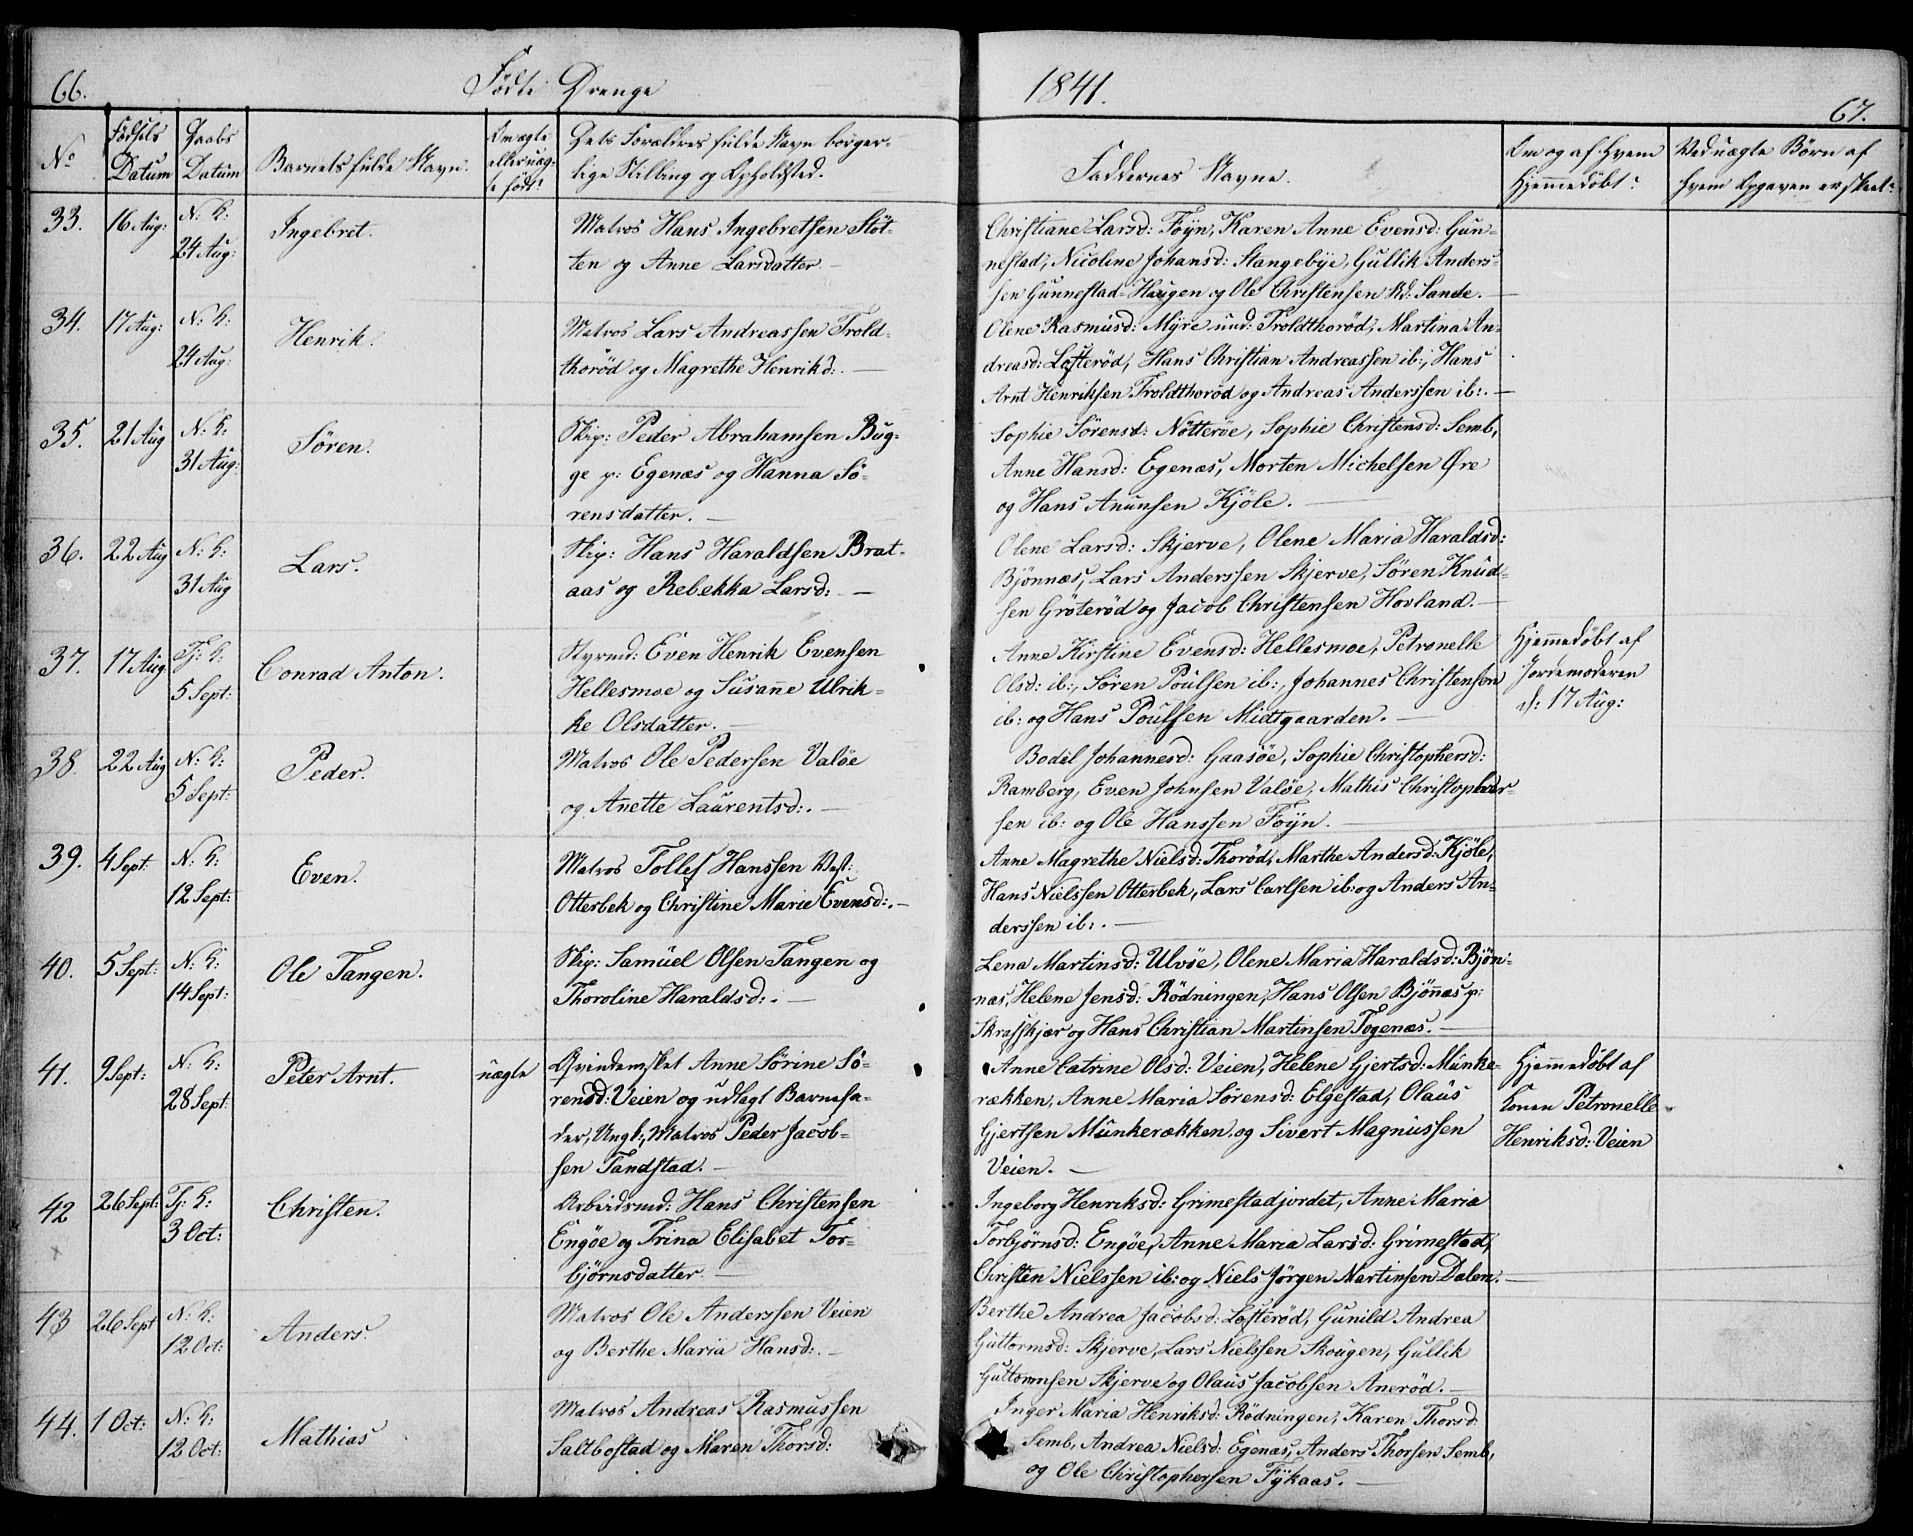 66.
Födte Drenge
1841.
67.
No
Födsels Datum
Daabs Datum
Barnets fulde Navn.
Om ægte eller uægte født?
Dets Forældres fulde Navn borger-
lige Stilling og Opholdsted.
Faddernes Navne.
Om og af Hvem
Hjemmedöbt?
Ved uægte Børn af
hvem Opgaven er skeet?
33.
16 Aug:
N: K:
24 Aug:
Ingebret.
Matros Hans Ingebretsen Stöt-
ten og Anne Larsdatter. –
Christiane Larsd: Föyn, Karen Anne Evensd: Gun-
nestad, Nicoline Johansd: Stangebye, Gullik Anders-
sen Gunnestad-Haugen og Ole Christensen Nd: Sande. –
34.
17 Aug:
N: K:
24 Aug:
Henrik.
Matros Lars Andreassen Trold-
thoröd og Magrethe Henrikd:. –
Olene Rasmusd: Myre und: Troldthoröd, Martina An-
dreasd: Lofteröd, Hans Christian Andreassen ib:, Hans
Arnt Henriksen Troldthoröd og Andreas Anderssen ib:. –
35.
21 Aug
N: K:
31 Aug:
Sören.
Skip: Peder Abrahamsen Bug-
ge p: Egenæs og Hanna Sö-
rensdatter. –
Sophie Sörensd: Nötteröe, Sophie Christensd: Semb,
Anne Hansd: Egenæs, Morten Michelsen Øre
og Hans Anunsen Kjöle. –
36.
22 Aug
N: K:
31 Aug
Lars.
Skip: Hans Haraldsen Brat-
aas og Rebekka Larsd: –
Olene Larsd: Skjerve, Olene Maria Haraldsd:
Bjönnæs, Lars Anderssen Skjerve, Sören Knud-
sen Gröteröd og Jacob Christensen Hovland. –
37.
17 Aug
Tj: K:
5 Sept:
Conrad Anton.
Styrmd: Even Henrik Evensen
Hellesmoe og Susanne Ulrik-
ke Olsdatter. –
Anne Kirstine Evensd: Hellesmoe, Petronelle
Olsd: ib:, Sören Poulsen ib:, Johannes Christensen
ib: og Hans Poulsen Midtgaarden. –
Hjemmedöbt af
Jordemoderen
d: 17 Aug:
38.
22 Aug
N: K:
5 Sept:
Peder.
Matros Ole Pedersen Valöe
og Anette Laurentsd:. –
Bodel Johannesd: Gaasöe, Sophie Christophersd:
Ramberg, Even Johnsen Valöe, Mathis Christopher-
sen ib: og Ole Hanssen Föyn. –
39.
4 Sept
N: K:
12 Sept:
Even.
Matros Tollef Hanssen Vest:
Otterbek og Christine Marie Evensd:. –
Anne Magrethe Nielsd: Thoröd, Marthe Andersd: Kjöle,
Hans Nielssen Otterbek, Lars Carlsen ib: og Anders An-
derssen ib:. –
40.
5 Sept:
N: K:
14 Sept:
Ole Tangen.
Skip: Samuel Olsen Tangen og
Thoroline Haraldsd:. –
Lena Martinsd: Ulvöe, Olene Maria Haraldsd: Bjön-
næs, Helene Jensd: Rödningen, Hans Olsen Bjönnæs p:
Skrafskjær og Hans Christian Martinsen Togenæs. –
41.
9 Sept:
N: K:
28 Sept:
Peter Arnt.
uægte
Qvindemsket Anne Sörine Sö-
rensd: Veien og udlagt Barnefa-
der, Ungk:, Matros Peder Jacob-
sen Tandstad. –
Anne Catrine Olsd: Veien, Helene Gjertsd: Munke-
rækken, Anne Maria Sörensd: Elgestad, Olaus
Gjertsen Munkerækken og Sivert Magnussen
Veien. –
Hjemmedöbt af
Konen Petronelle
Henriksd: Veien
42
26 Sept:
Tj: K:
3 Oct:
Christen.
Arbeidsmd: Hans Christensen
Engöe og Trina Elisabet Tor-
björnsdatter. –
Ingeborg Henriksd: Grimestadjordet, Anne Maria
Torbjörnsd: Engöe, Anne Maria Larsd: Grimestad,
Christen Nielssen ib: og Niels Jörgen Martinsen Dalen. –
43
26 Sept
N: K:
12 Oct:
Anders.
Matros Ole Anderssen Veien
og Berthe Maria Hansd:. –
Berthe Andrea Jacobsd: Lofteröd, Gunild Andrea
Guttormsd: Skjerve, Lars Nielssen Skougen, Gullik
Guttormsen Skjerve og Olaus Jacobsen Aneröd. –
44.
1 Oct:
N: K:
12 Oct:
Mathias
Matros Andreas Rasmussen
Saltbostad og Maren Thorsd:
Inger Maria Henriksd: Rödningen, Karen Thorsd:
Semb, Andrea Nielsd: Egenæs, Anders Thorsen Semb,
og Ole Christophersen Fykaas. –